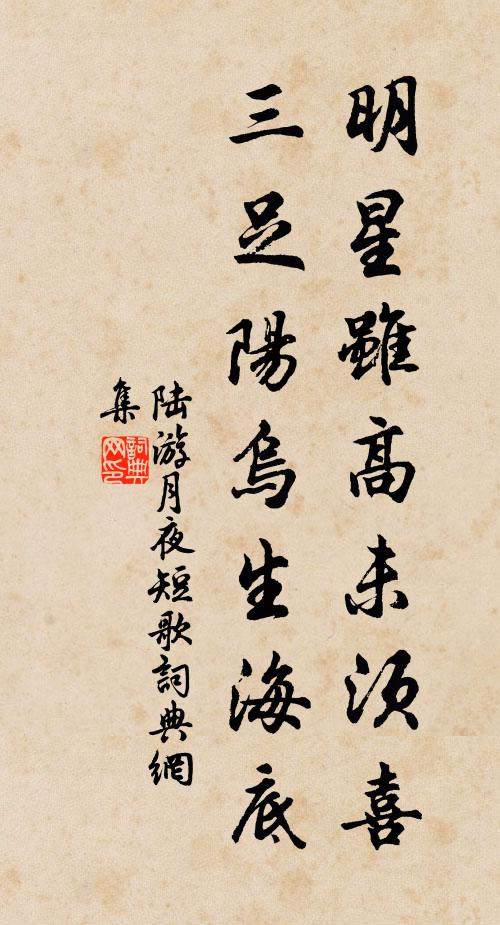 明星雖高未須喜
三足陽烏生海底
陸游月夜短歌詞典網
集
詞典網印